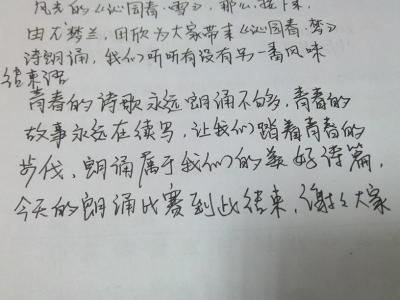 风光的《沁园春·雪》,那么,接下来,
由尤梦兰,田欣为大家带来《沁园春·梦》
诗朗诵,我们听听有没有另一番风味
结束语
青春的诗歌永远朗诵不够,青春的
故事永远在续写,让我们踏着青春的
步伐、朗诵属于我们的美好诗篇,
今天的朗诵比赛到此结束,谢谢大家